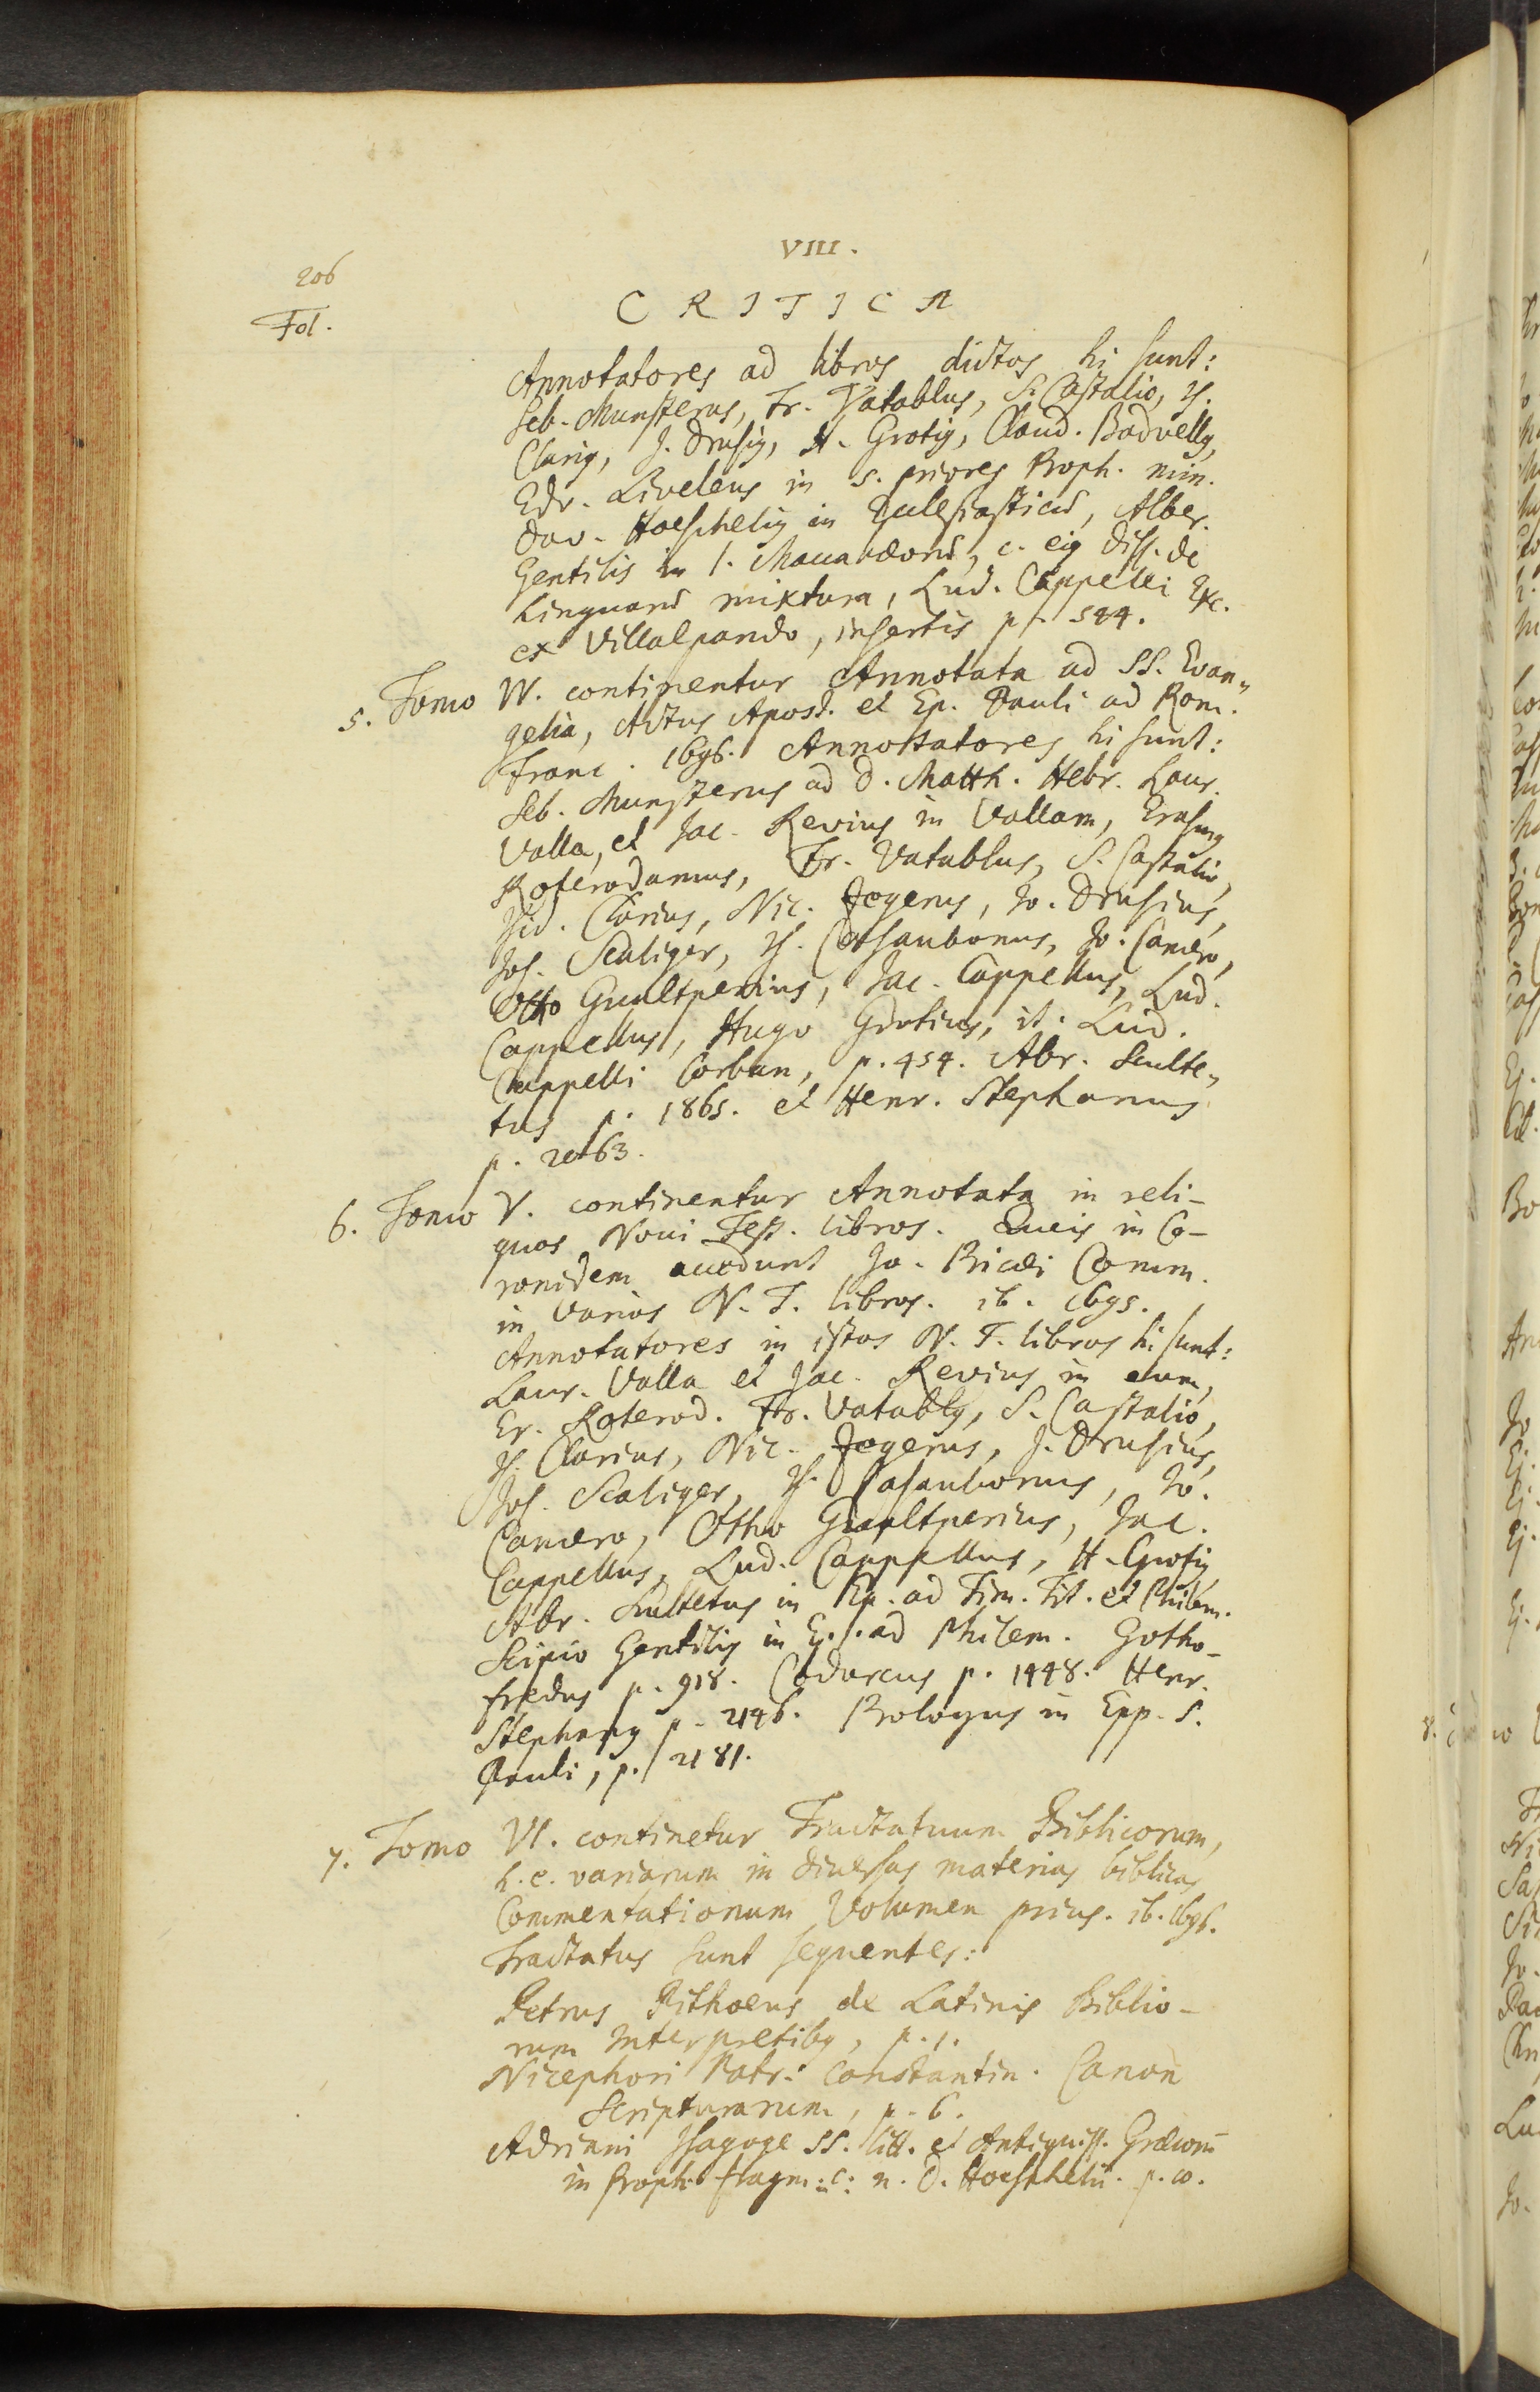 VIII.
206
CRITICA
Fol.
Annotatores ad libros dictos hi sunt:
Seb. Munsterus, Fr. Vatablus, S. Castalio, Is.
Clarius, J. Drusius, H. Grotius, Claud. Badvellus,
Edv. Liveleus in 5. priores Proph. min.
Dav. Hoeschelius in Ecclesiasticū, Alber.
Gentilis in 1. Maccabæorū, c. eius diss. de
Linguarū mixtura, Lud. Cappelli Exc.
ex Villalpando, insertis p. 544.
5. Tomo IV. continentur Annotata ad SS. Evan„
gelia, Actus Apost. et Ep. Pauli ad Rom.
Franc. 1696. Annotatores hi sunt:
Seb. Munsterus ad D. Matth. Hebr. Laur.
Valla, et Jac. Revius in Vallam, Erasmus
Roterodamus, Fr. Vatablus, S. Castalio,
Isid. Clarius, Nic. Zegerus, Jo. Drusius,
Jos. Scaliger, Is. Casaubonus, Jo. Camero,
Otto Gualtperius, Jac. Cappellus, Lud.
Cappellus, Hugo Grotius, it. Lud.
Cappelli Corban, p. 454. Abr. Sculte„
tus p. 1865. et Henr. Stephanus
p. 2063.
6. Tomo V. continentur Annotata in reli-
quos Novi Test. libros. Queis in Co-
ronidem accedunt Jo. Pricæi Comm.
in varios N. T. libros. ib. 1695.
Annotatores in istos N. T. libros hi sunt:
Laur. Valla et Jac. Revius in eum,
Er. Roterod. Fr. Vatablus, S. Castalio,
Is. Clarius, Nic. Zegerus, J. Drusius,
Jos. Scaliger, Is. Casaubonus, Jo.
Camero, Otho Gualtperius, Jac.
Cappellus, Lud. Cappellus, H. Grotius
Abr. Scultetus in Ep. ad Tim. Tit. et Philem.
Scipio Gentilis in Ep. ad Philem. Gotho-
fredus p. 918. Codurcus p. 1448. Henr.
Stephanus p. 2146. Prologus in Epp. S.
Pauli, p. 2181.
7. Tomo VI. continetur Tractatuum Biblicorum,
h. e. variarum in diversas materias biblicas
Commentationum Volumen prius. ib. 1696.
Tractatus sunt sequentes:
Petrus Pithoeus de Latinis Biblio-
rum Interpretibus, p. 1.
Nicephori Patr. Constantin. Canon
Scripturarum, p. 6.
Adriani Isagoge SS. litt. et Antiquiss. Græcorū
in Proph. fragm. c. n. D. Hoeschelii. p. 10.